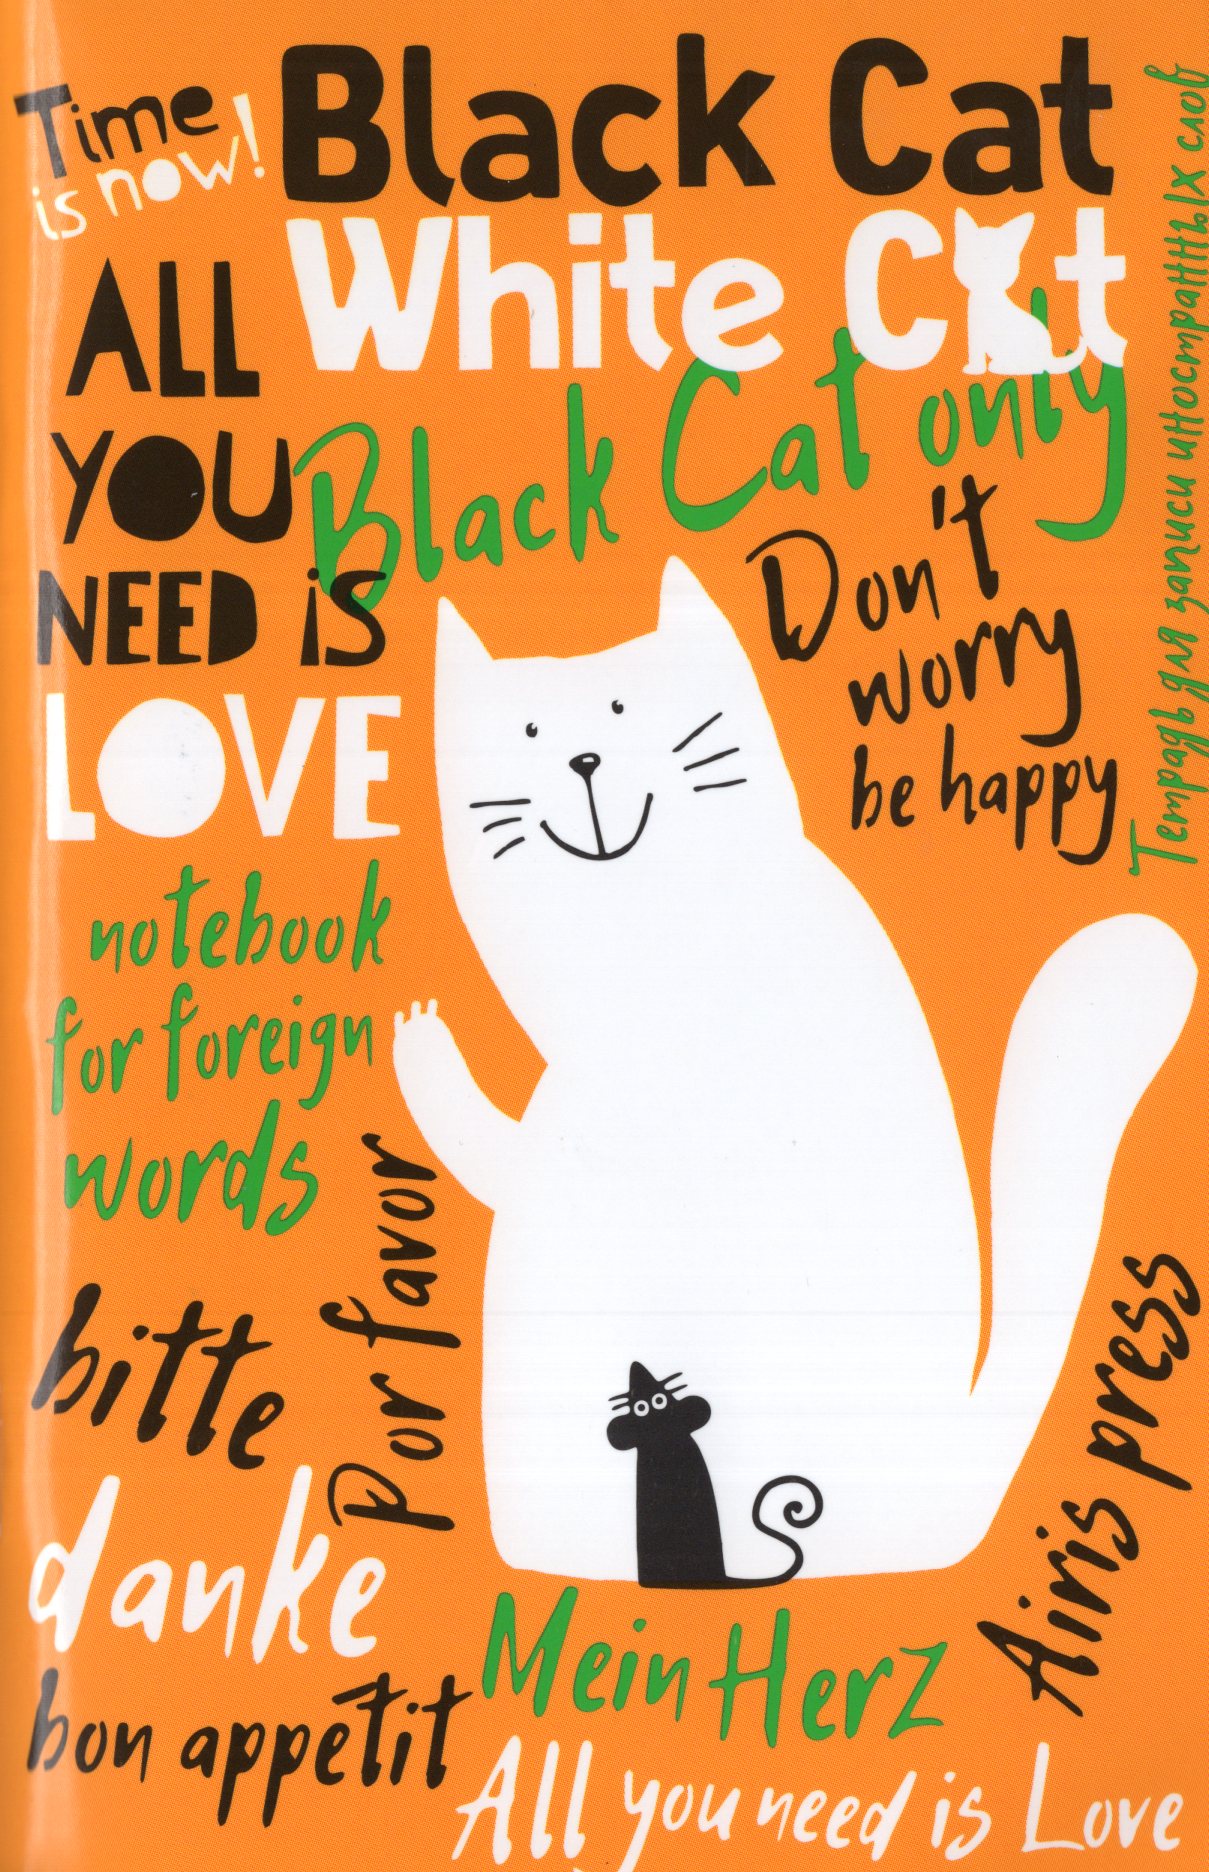 Time
is now!
Black Cat
White Cat
Black Cat only
ALL
YOU
NEED iS
LOVE
Don't
worry
be happy
Тетрадь для записи иностранных слов
notebook
for foreign
words
por favor
bitte
danke
bon appetit
Mein Herz
Airis press
All you need is Love